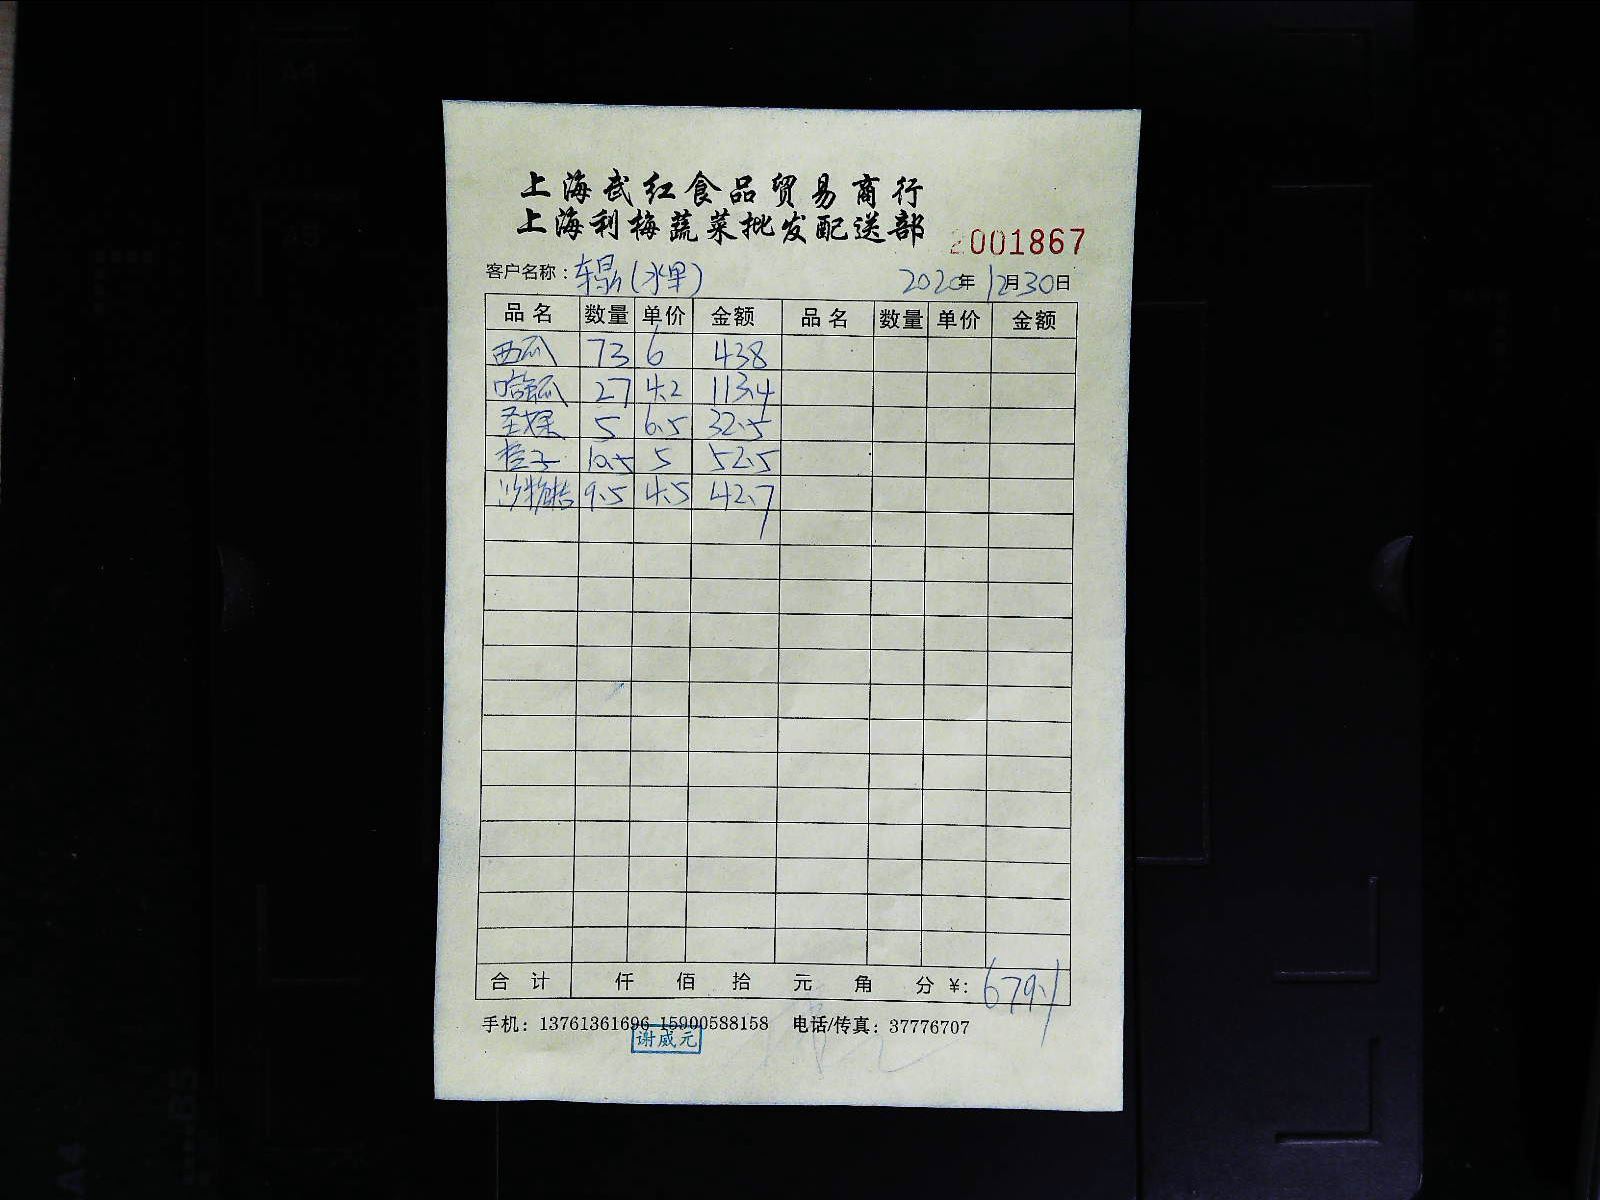 上海武红食品贸易商行
上海利梅蔬菜批发配送部
2001867
客户名称：车易(水果) 2020年12月30日
品名 数量 单价 金额 品名 数量 单价 金额
西瓜 73 6 438
哈密瓜 27 4.2 113.4
圣女果 5 6.5 32.5
橙子 10.5 5 52.5
沙糖桔 9.5 4.5 42.7
合计 仟 佰 拾 元 角 分 ¥: 679.1
手机：13761361696 15900588158 电话/传真：37776707
谢威元